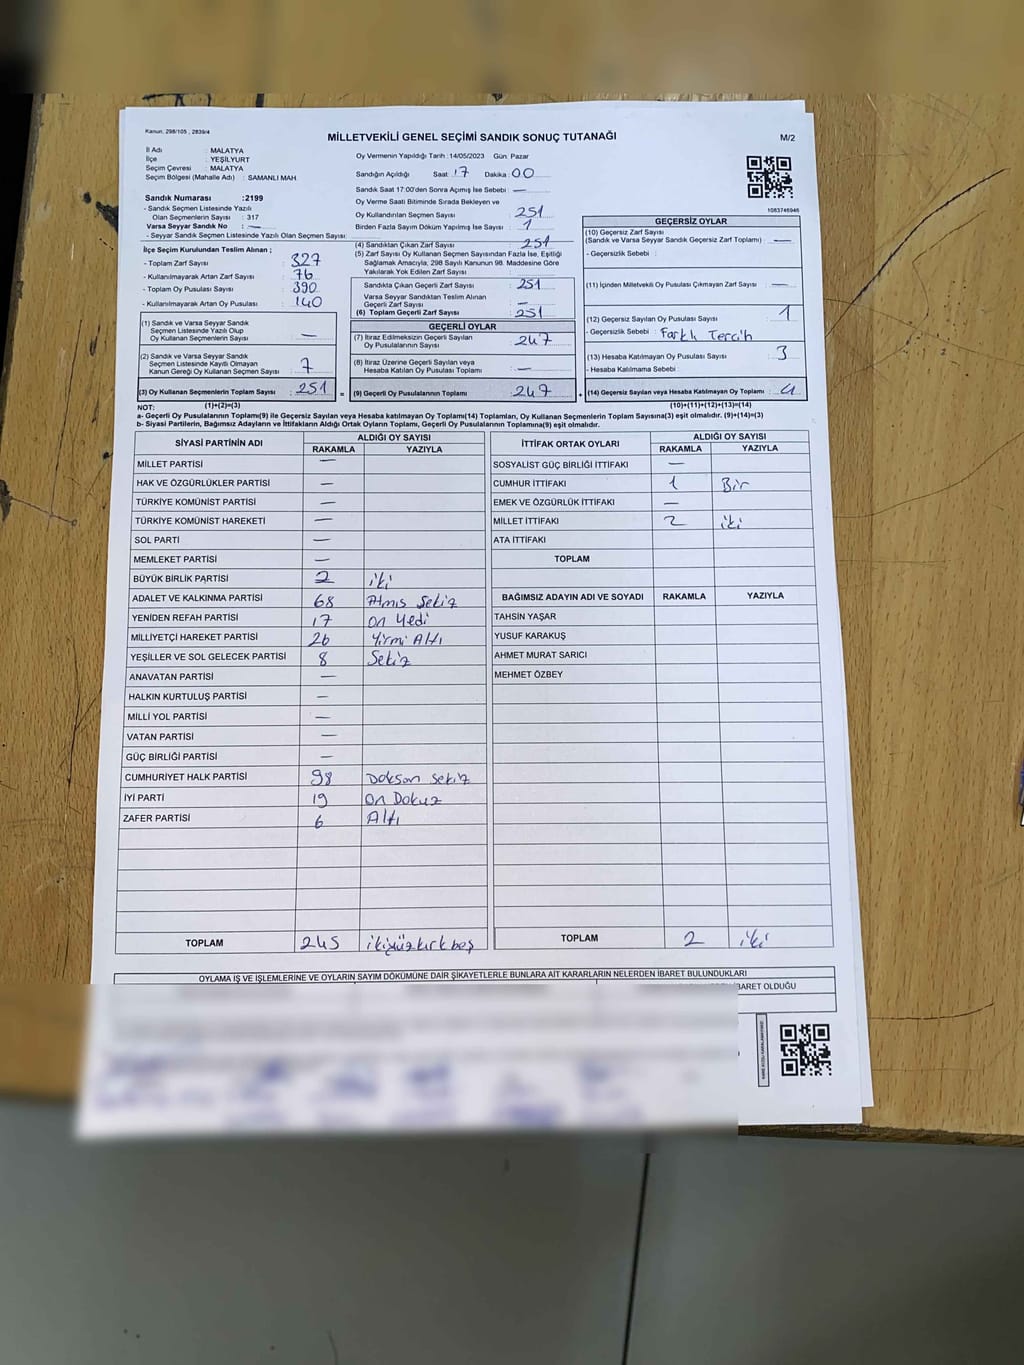 Kanun, 298/105 , 2839/4
MİLLETVEKİLİ GENEL SEÇİMİ SANDIK SONUÇ TUTANAĞI
M/2
İl Adı : MALATYA
İlçe : YEŞİLYURT
Seçim Çevresi : MALATYA
Seçim Bölgesi (Mahalle Adı) : SAMANLI MAH.
Sandık Numarası :2199
- Sandık Seçmen Listesinde Yazılı
Olan Seçmenlerin Sayısı : 317
Varsa Seyyar Sandık No : —
- Seyyar Sandık Seçmen Listesinde Yazılı Olan Seçmen Sayısı:
İlçe Seçim Kurulundan Teslim Alınan ;
- Toplam Zarf Sayısı : 327
- Kullanılmayarak Artan Zarf Sayısı : 76
- Toplam Oy Pusulası Sayısı : 390
- Kullanılmayarak Artan Oy Pusulası : 140
(1) Sandık ve Varsa Seyyar Sandık
Seçmen Listesinde Yazılı Olup
Oy Kullanan Seçmenlerin Sayısı : —
(2) Sandık ve Varsa Seyyar Sandık
Seçmen Listesinde Kayıtlı Olmayan
Kanun Gereği Oy Kullanan Seçmen Sayısı : 7
(3) Oy Kullanan Seçmenlerin Toplam Sayısı : 251
(1)+(2)=(3)
Oy Vermenin Yapıldığı Tarih : 14/05/2023 Gün: Pazar
Sandığın Açıldığı Saat : 17 Dakika : 00
Sandık Saat 17:00'den Sonra Açılmış İse Sebebi : —
Oy Verme Saati Bitiminde Sırada Bekleyen ve
Oy Kullandırılan Seçmen Sayısı : 251
Birden Fazla Sayım Döküm Yapılmış İse Sayısı : 1
(4) Sandıktan Çıkan Zarf Sayısı : 251
(5) Zarf Sayısı Oy Kullanan Seçmen Sayısından Fazla İse, Eşitliği
Sağlamak Amacıyla, 298 Sayılı Kanunun 98. Maddesine Göre
Yakılarak Yok Edilen Zarf Sayısı :
Sandıkta Çıkan Geçerli Zarf Sayısı : 251
Varsa Seyyar Sandıktan Teslim Alınan
Geçerli Zarf Sayısı : —
(6) Toplam Geçerli Zarf Sayısı : 251
GEÇERLİ OYLAR
(7) İtiraz Edilmeksizin Geçerli Sayılan
Oy Pusulalarının Sayısı : 247
(8) İtiraz Üzerine Geçerli Sayılan veya
Hesaba Katılan Oy Pusulası Toplamı : —
(9) Geçerli Oy Pusulalarının Toplamı : 247
1083746946
GEÇERSİZ OYLAR
(10) Geçersiz Zarf Sayısı
(Sandık ve Varsa Seyyar Sandık Geçersiz Zarf Toplamı) : —
- Geçersizlik Sebebi :
(11) İçinden Milletvekili Oy Pusulası Çıkmayan Zarf Sayısı : —
(12) Geçersiz Sayılan Oy Pusulası Sayısı : 1
- Geçersizlik Sebebi : Farklı Tercih
(13) Hesaba Katılmayan Oy Pusulası Sayısı : 3
- Hesaba Katılmama Sebebi :
(14) Geçersiz Sayılan veya Hesaba Katılmayan Oy Toplamı : 4
(10)+(11)+(12)+(13)=(14)
NOT:
a- Geçerli Oy Pusulalarının Toplamı(9) ile Geçersiz Sayılan veya Hesaba katılmayan Oy Toplamı(14) Toplamları, Oy Kullanan Seçmenlerin Toplam Sayısına(3) eşit olmalıdır. (9)+(14)=(3)
b- Siyasi Partilerin, Bağımsız Adayların ve İttifakların Aldığı Ortak Oyların Toplamı, Geçerli Oy Pusulalarının Toplamına(9) eşit olmalıdır.
SİYASİ PARTİNİN ADI ALDIĞI OY SAYISI
RAKAMLA YAZIYLA
MİLLET PARTİSİ —
HAK VE ÖZGÜRLÜKLER PARTİSİ —
TÜRKİYE KOMÜNİST PARTİSİ —
TÜRKİYE KOMÜNİST HAREKETİ —
SOL PARTİ —
MEMLEKET PARTİSİ —
BÜYÜK BİRLİK PARTİSİ 2 iki
ADALET VE KALKINMA PARTİSİ 68 Atmış Sekiz
YENİDEN REFAH PARTİSİ 17 On Yedi
MİLLİYETÇİ HAREKET PARTİSİ 26 Yirmi Altı
YEŞİLLER VE SOL GELECEK PARTİSİ 8 Sekiz
ANAVATAN PARTİSİ —
HALKIN KURTULUŞ PARTİSİ —
MİLLİ YOL PARTİSİ —
VATAN PARTİSİ —
GÜÇ BİRLİĞİ PARTİSİ —
CUMHURİYET HALK PARTİSİ 98 Doksan Sekiz
İYİ PARTİ 19 On Dokuz
ZAFER PARTİSİ 6 Altı
TOPLAM 245 ikiyüzkırkbeş
İTTİFAK ORTAK OYLARI ALDIĞI OY SAYISI
RAKAMLA YAZIYLA
SOSYALİST GÜÇ BİRLİĞİ İTTİFAKI —
CUMHUR İTTİFAKI 1 Bir
EMEK VE ÖZGÜRLÜK İTTİFAKI —
MİLLET İTTİFAKI 2 iki
ATA İTTİFAKI
TOPLAM
BAĞIMSIZ ADAYIN ADI VE SOYADI RAKAMLA YAZIYLA
TAHSİN YAŞAR
YUSUF KARAKUŞ
AHMET MURAT SARICI
MEHMET ÖZBEY
TOPLAM 2 iki
OYLAMA İŞ VE İŞLEMLERİNE VE OYLARIN SAYIM DÖKÜMÜNE DAİR ŞİKAYETLERLE BUNLARA AİT KARARLARIN NELERDEN İBARET BULUNDUKLARI
İBARET OLDUĞU